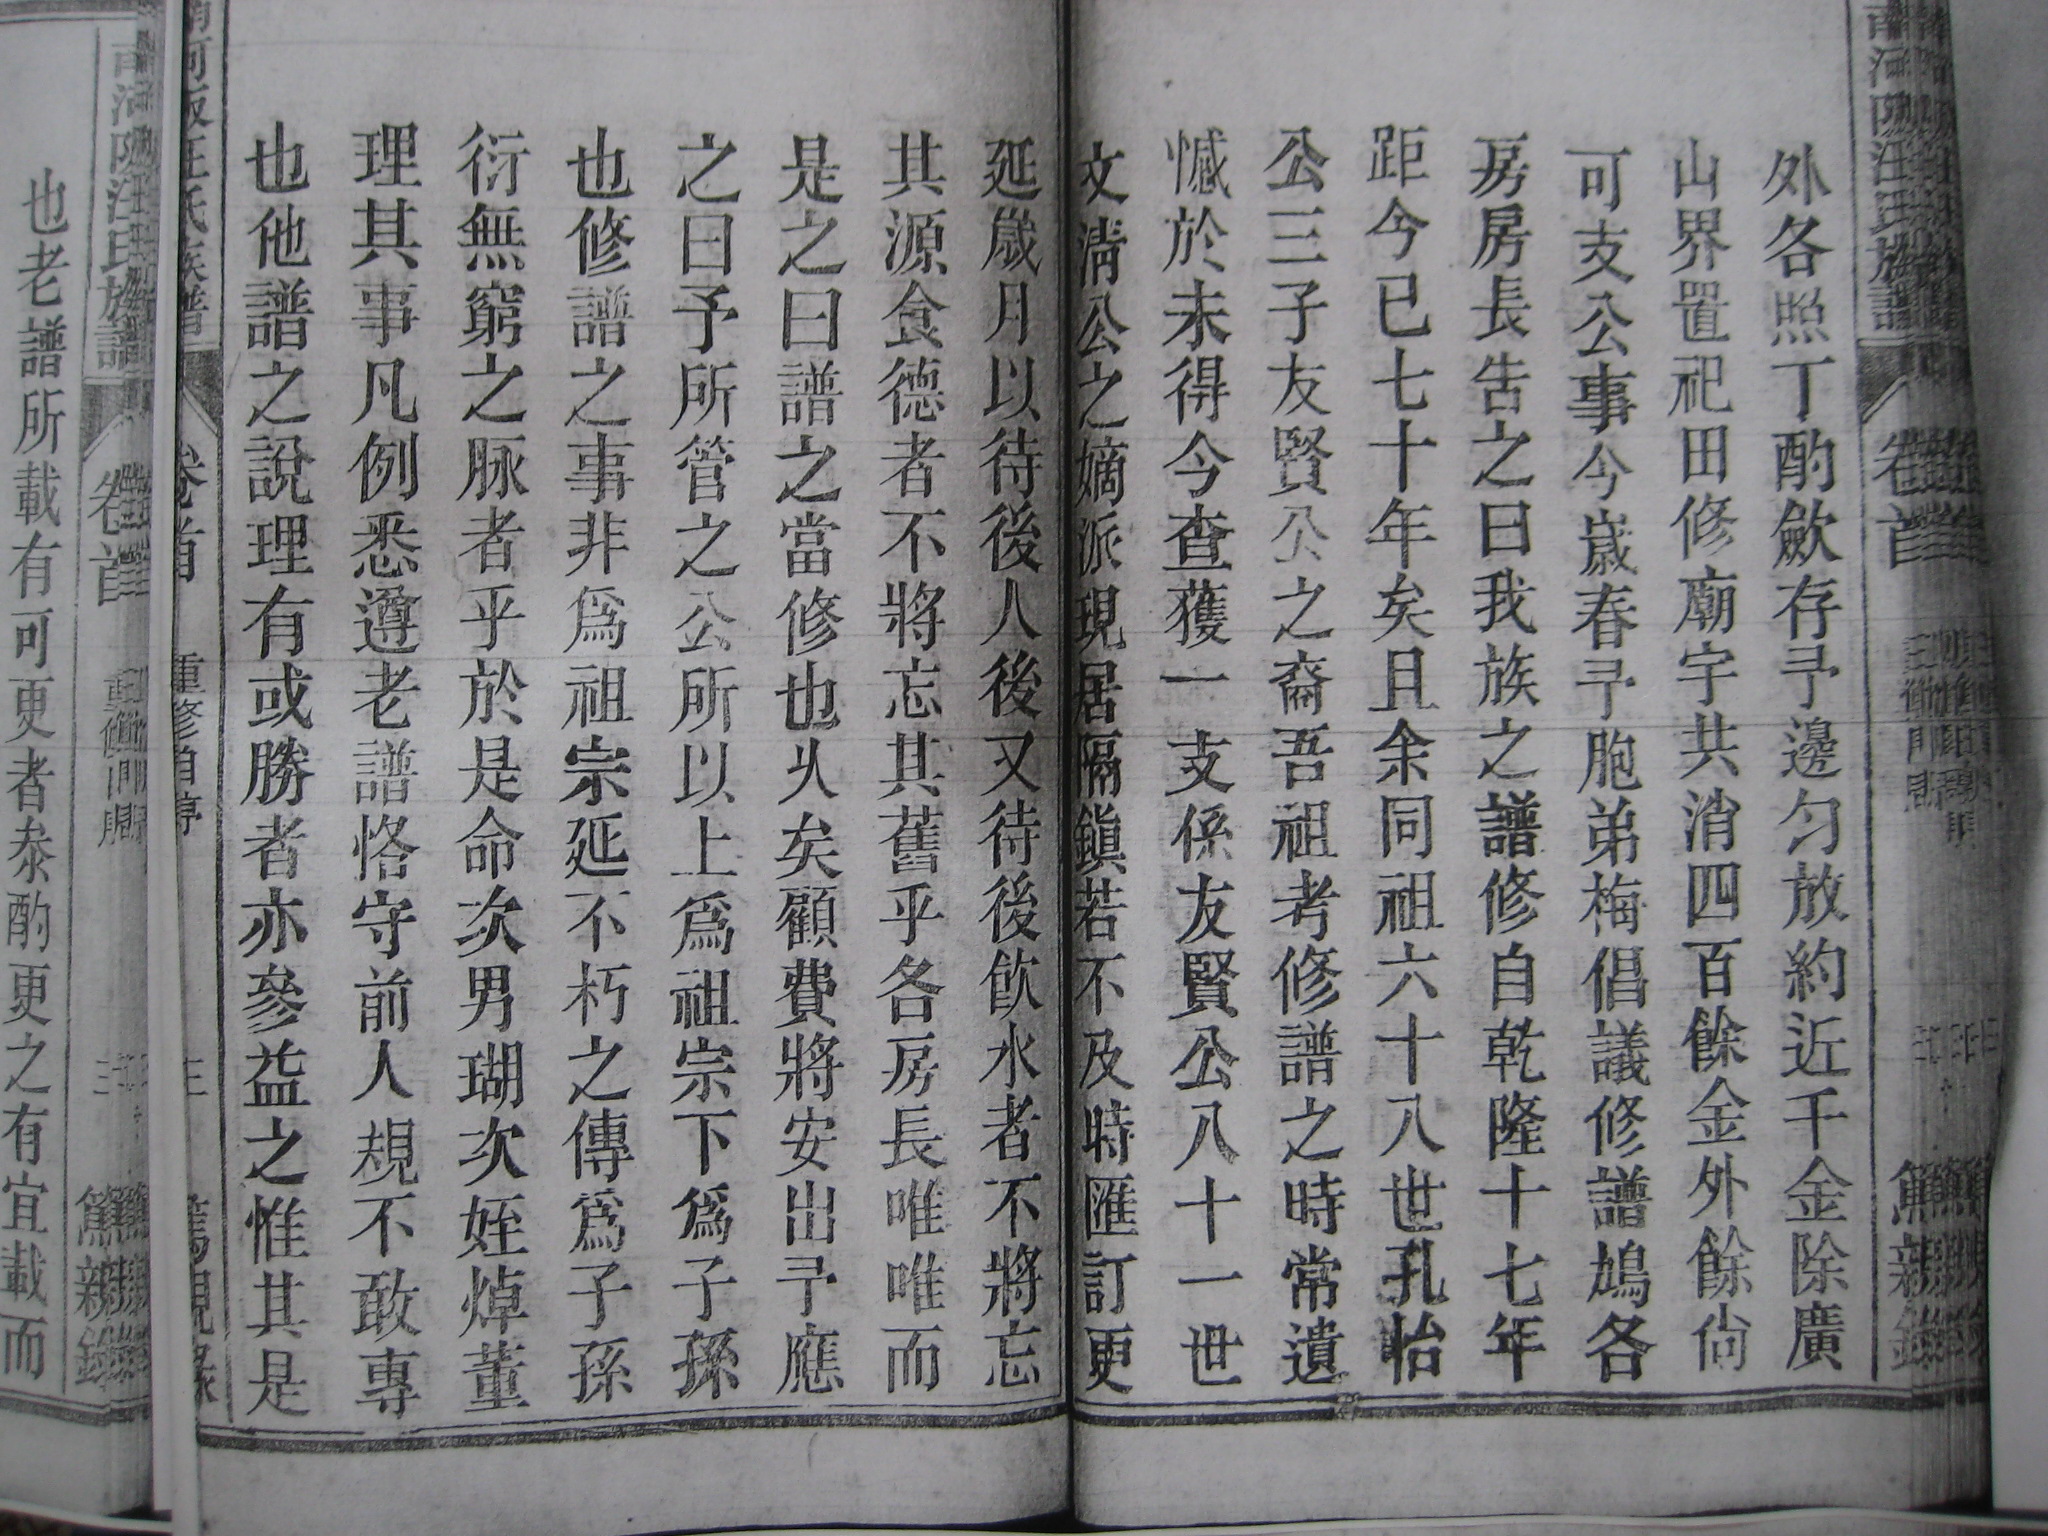 外各照丁酌歛存予邊勻放約近千金除廣
山界置祀田修廟宇共消四百餘金外餘尙
可支公事今歲春予胞弟梅倡議修譜鳩各
房房長告之曰我族之譜修自乾隆十七年
距今已七十年矣且余同祖六十八世孔怡
公三子友賢公之裔吾祖考修譜之時常遺
憾於未得今查獲一支係友賢公八十一世
文淸公之嫡派現居隔鎭若不及時匯訂更
延歲月以待後人後又待後飮水者不將忘
其源食德者不將忘其舊乎各房長唯唯而
是之曰譜之當修也乆矣顧費將安出予應
之曰予所管之公所以上爲祖宗下爲子孫
也修譜之事非爲祖宗延不朽之傳爲子孫
衍無窮之脉者乎於是命次男瑚次姪焯董
理其事凡例悉遵老譜恪守前人規不敢專
也他譜之說理有或勝者亦參益之惟其是
汪氏族譜 卷首 重修 三 篤親錄
也老譜所載有可更者叅酌更之有宜載而